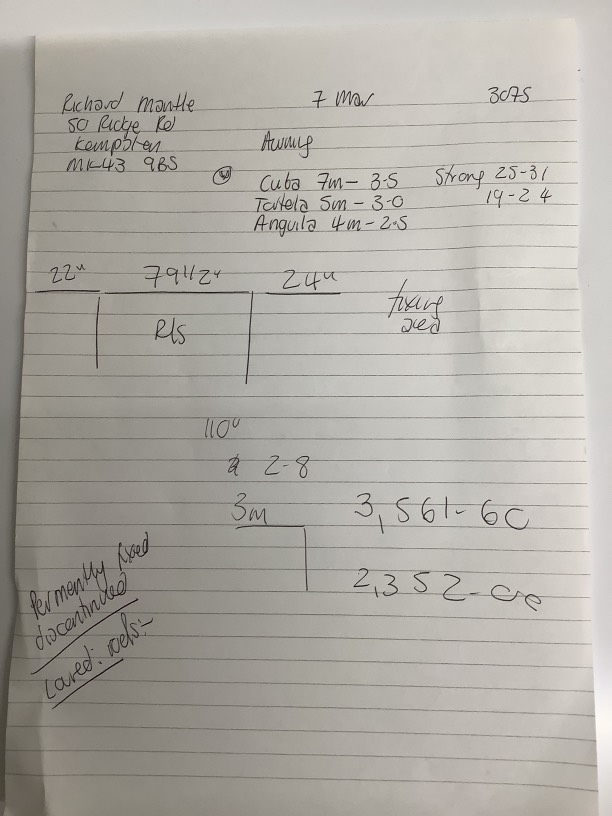 Richard Mantle
7 Mar
3075
50 Ridge Rd
Kempston
MK43 9BS
Awning
Cuba 7m - 3.5
Strong 25-31
Tutela 5m - 3-0
19-24
Anguila 4m - 2.5
22"
79 1/2"
24"
R/S
fixing
110"
2-8
3m
3,561-60
2,352-00
Permently fixed
discontinued